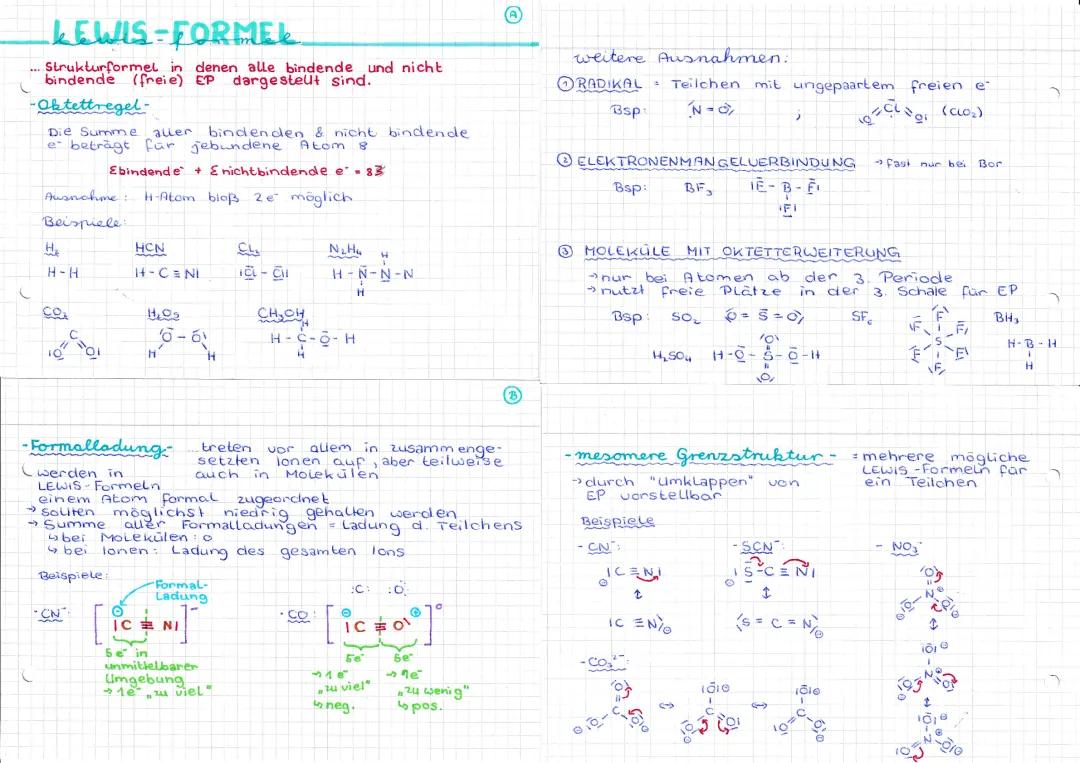 A
LEWIS-FORMEL
... Strukturformel in denen alle bindende und nicht
bindende (freie) EP dargestellt sind.
-Oktettregel-
Die Summe aller bindenden & nicht bindende
e⁻ beträgt für jebundene Atom 8
Σbindende⁻ + Σnichtbindende e⁻ = 8
Ausnahme: H-Atom bloß 2e⁻ möglich
Beispiele:
H₂ HCN Cl₂ N₂H₄
H-H H-C≡N| |Cl-Cl| H-N-N-N
H H
CO₂ H₂O₂ CH₃OH
H
C O-O H-C-O-H
|O O| H H H
weitere Ausnahmen:
① RADIKAL = Teilchen mit ungepaartem freien e⁻
Bsp: N=O ; O Cl O| (ClO₂)
② ELEKTRONENMANGELVERBINDUNG → fast nur bei Bor
Bsp: BF₃ |F-B-F|
|F|
③ MOLEKÜLE MIT OKTETTERWEITERUNG
→ nur bei Atomen ab der 3. Periode
→ nutzt freie Plätze in der 3. Schale für EP
Bsp: SO₂ O=S=O SF₆ F F F S F F F BH₃
H-B-H
H
H₂SO₄ H-O-S-O-H
O O
B
-Formalladung- ... treten vor allem in zusammenge-
setzten Ionen auf, aber teilweise
auch in Molekülen
werden in
LEWIS-Formeln
einem Atom formal zugeordnet
→ sollten möglichst niedrig gehalten werden
→ Summe aller Formalladungen = Ladung d. Teilchens
↳ bei Molekülen: 0
↳ bei Ionen: Ladung des gesamten Ions
Beispiele:
Formal-
Ladung
- CN⁻: [|C≡N|]⁻
5e⁻ in
unmittelbarer
Umgebung
→ 1e⁻ "zu viel"
:C: :O:
- CO: [|C≡O|]⁰
5e⁻ 5e⁻
→ 1e⁻ → 1e⁻
"zu viel" "zu wenig"
↳ neg. ↳ pos.
-mesomere Grenzstruktur- = mehrere mögliche
LEWIS-Formeln für
ein Teilchen
→ durch "Umklappen" von
EP vorstellbar
Beispiele
- CN⁻: - SCN⁻: - NO₃⁻
|C≡N| |S-C≡N|
↕ ↕
|C≡N S=C=N
- CO₃²⁻: